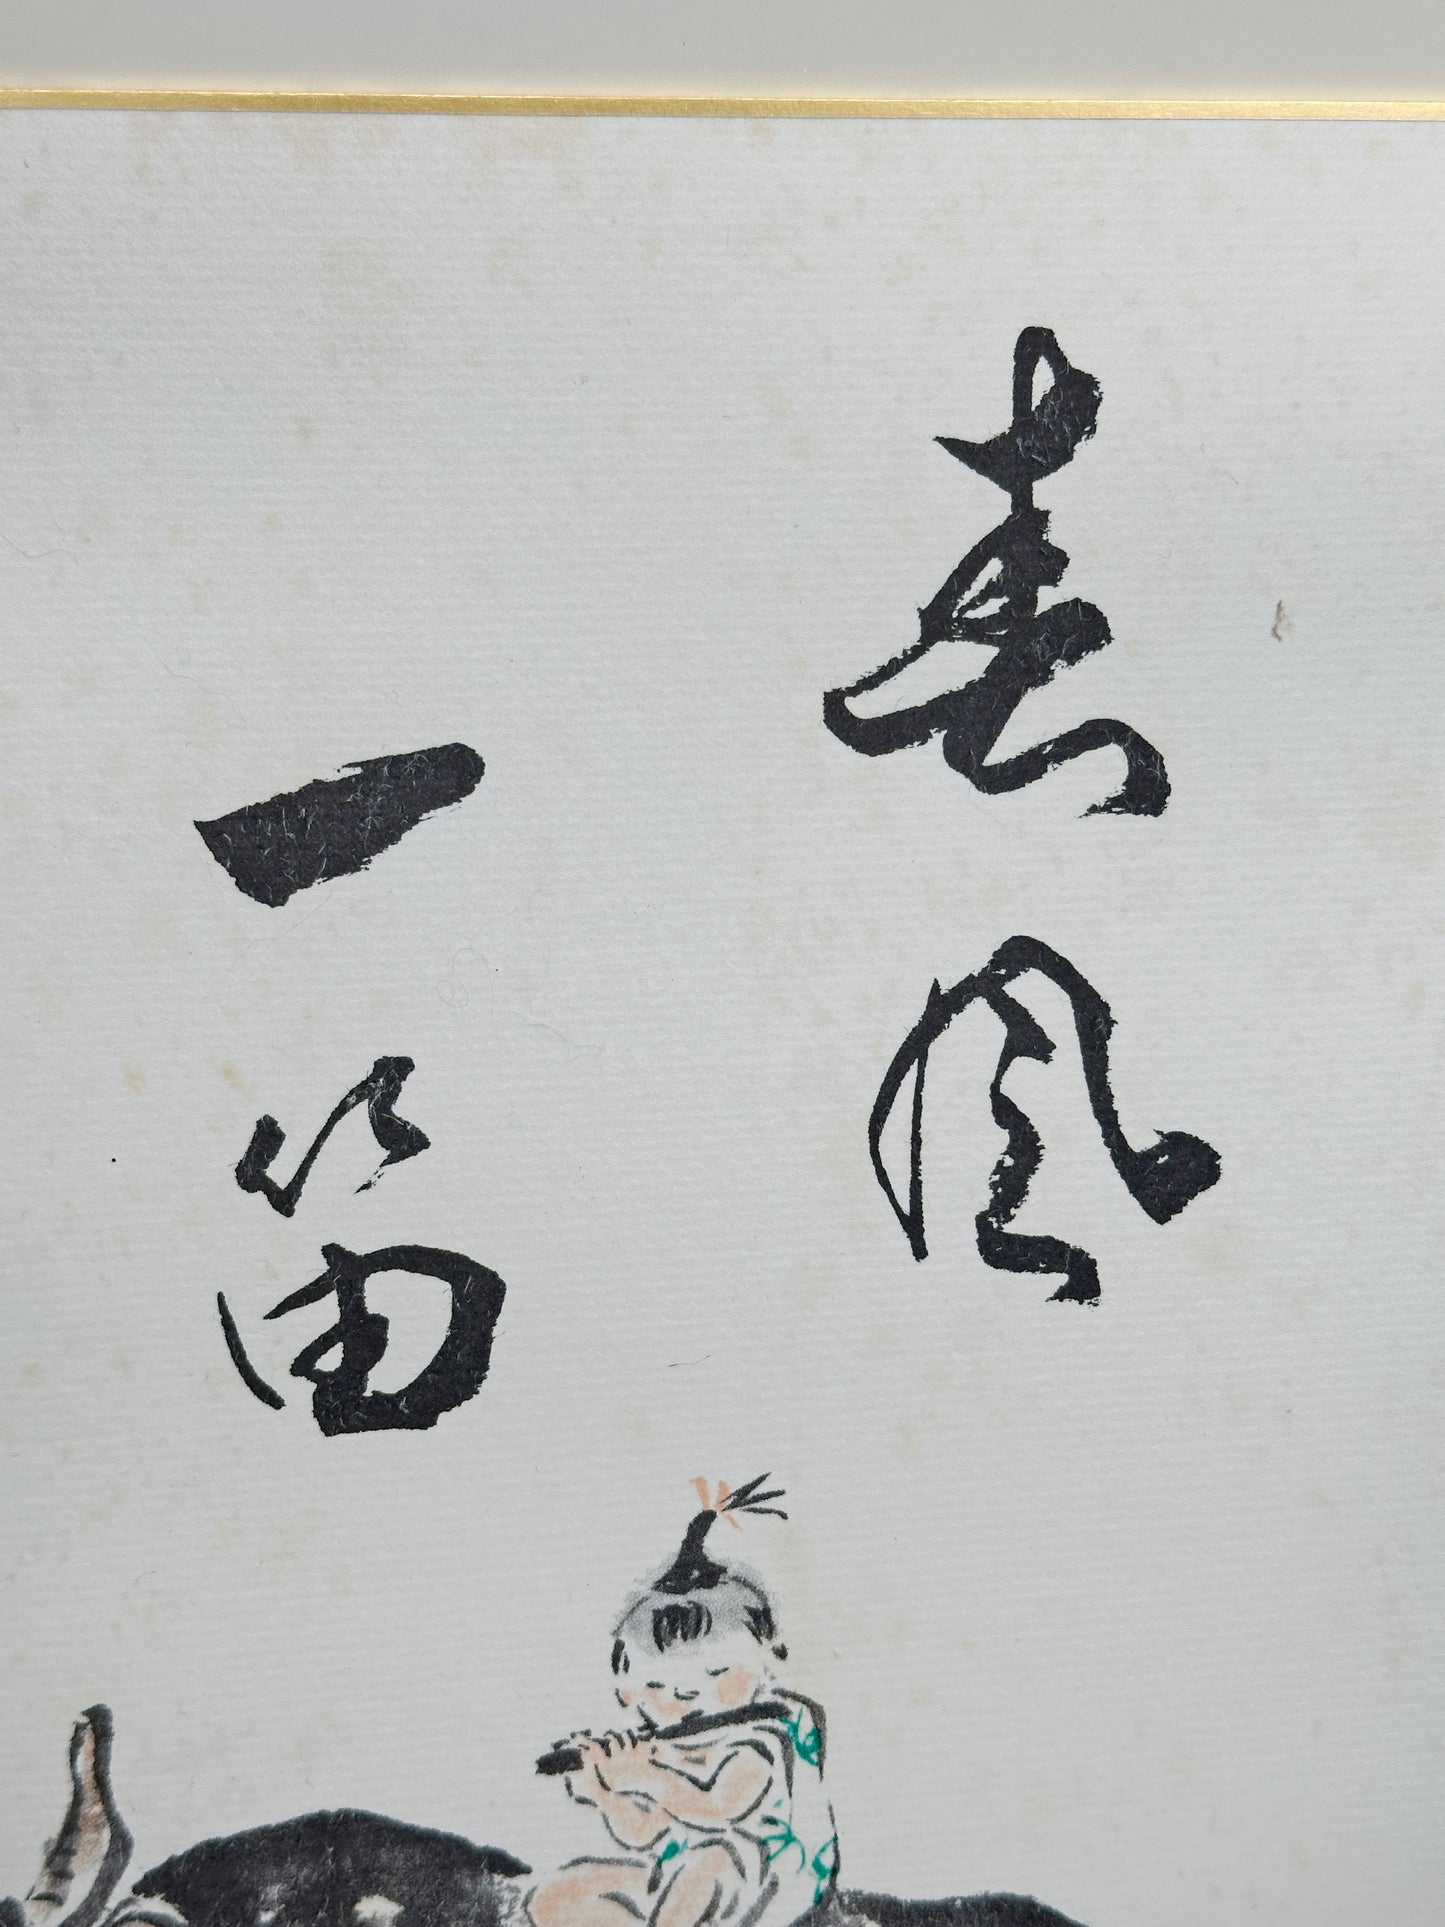 春風
一笛